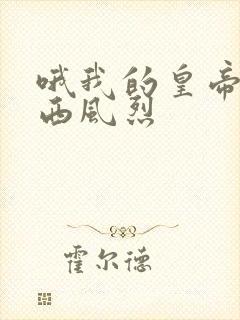 哦我的皇帝
西风烈
霍尔德